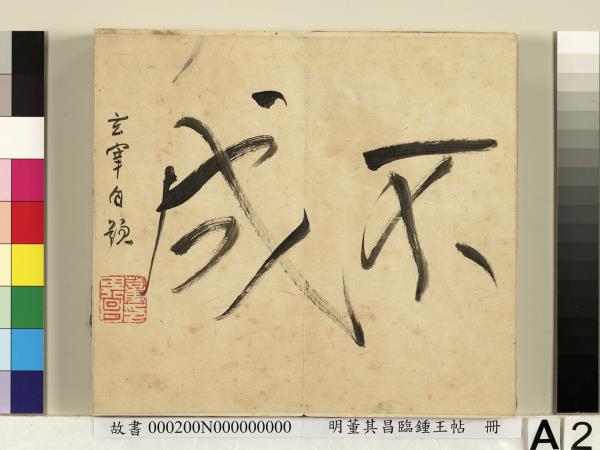 不成
玄宰自題
故書 000200N000000000 明董其昌臨鍾王帖 冊
A 2